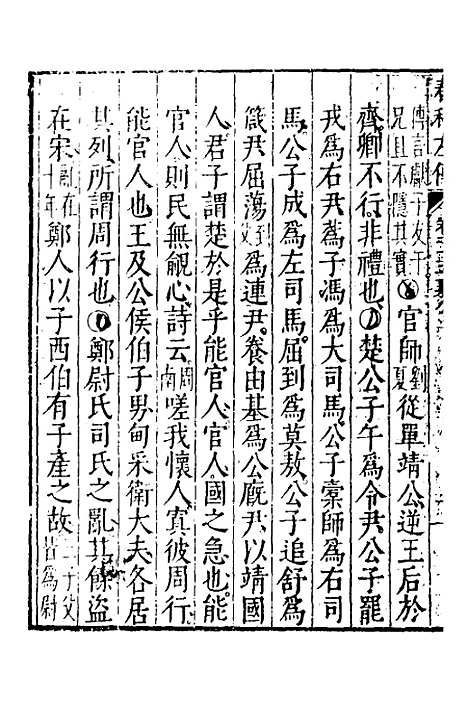 春秋左傳
傳言獻子友于
兄且不隱其實官師劉夏從單靖公逆王后於
齊卿不行非禮也楚公子午爲令尹公子罷
戎爲右尹蒍子馮爲大司馬公子橐師爲右司
馬公子成爲左司馬屈到爲莫敖公子追舒爲
箴尹屈蕩到爲連尹養由基爲公廐尹以靖國
人君子謂楚於是乎能官人官人國之急也能
官人則民無覦心詩云周南嗟我懷人寘彼周行
能官人也王及公侯伯子男甸采衞大夫各居
其列所謂周行也鄭尉氏司氏之亂其餘盜
在宋亂在十年鄭人以子西伯有子產之故三子父皆爲尉